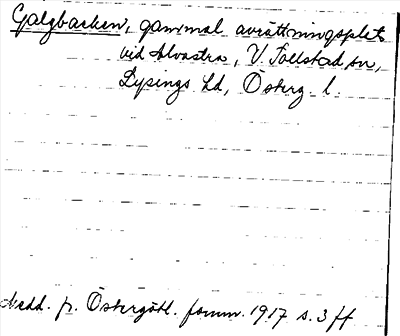 Galgbacken, gammal avrättningsplats
vid Alvastra, V. Tollstad sn,
Lysings hd, Österg. l.
Medd. fr. Östergötl. fornm. 1917 s. 3 ff